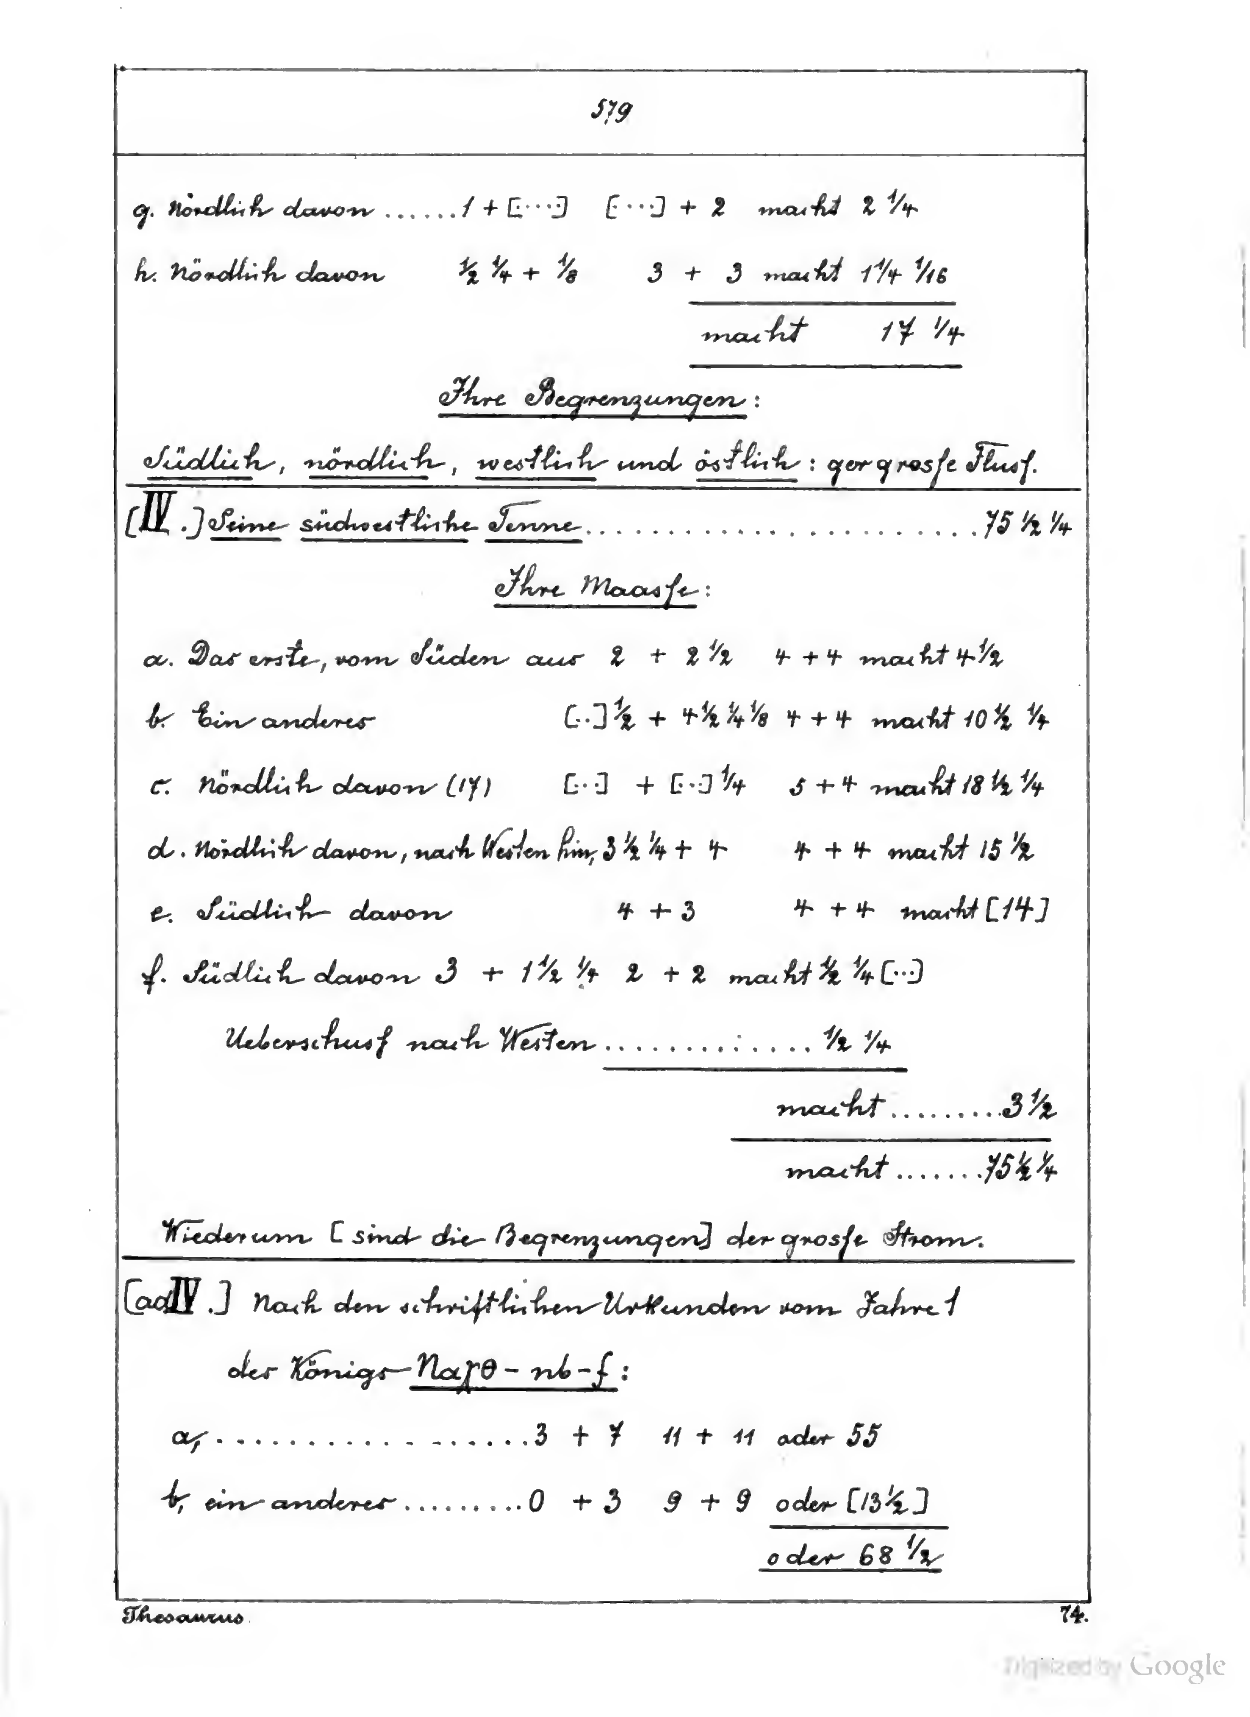 579
g. nördlich davon ......1 + [···] [···] + 2 macht 2 1/4
h. Nördlich davon 1/2 1/4 + 1/8 3 + 3 macht 1 1/4 1/16
macht 17 1/4
Ihre Begrenzungen:
Südlich, nördlich, westlich und östlich: der grosse Fluss.
[IV.] Seine südwestliche Tenne........................75 1/2 1/4
Ihre Maasse:
a. Das erste, vom Süden aus 2 + 2 1/2 4 + 4 macht 4 1/2
b. Ein anderes [··] 1/2 + 4 1/2 1/4 1/8 4 + 4 macht 10 1/2 1/4
c. Nördlich davon (17) [··] + [··] 1/4 5 + 4 macht 18 1/2 1/4
d. Nördlich davon, nach Westen hin, 3 1/2 1/4 + 4 4 + 4 macht 15 1/2
e. Südlich davon 4 + 3 4 + 4 macht [14]
f. Südlich davon 3 + 1 1/2 1/4 2 + 2 macht 1/2 1/4 [··]
Ueberschuss nach Westen ............. 1/2 1/4
macht .........3 1/2
macht .......75 1/2 1/4
Wiederum [sind die Begrenzungen] der grosse Strom.
[ad IV.] Nach den schriftlichen Urkunden vom Jahre 1
des Königs - nb - f:
a, ...................3 + 7 11 + 11 oder 55
b, ein anderes .........0 + 3 9 + 9 oder [13 1/2]
oder 68 1/2
Thesaurus 74.
Digitized by Google